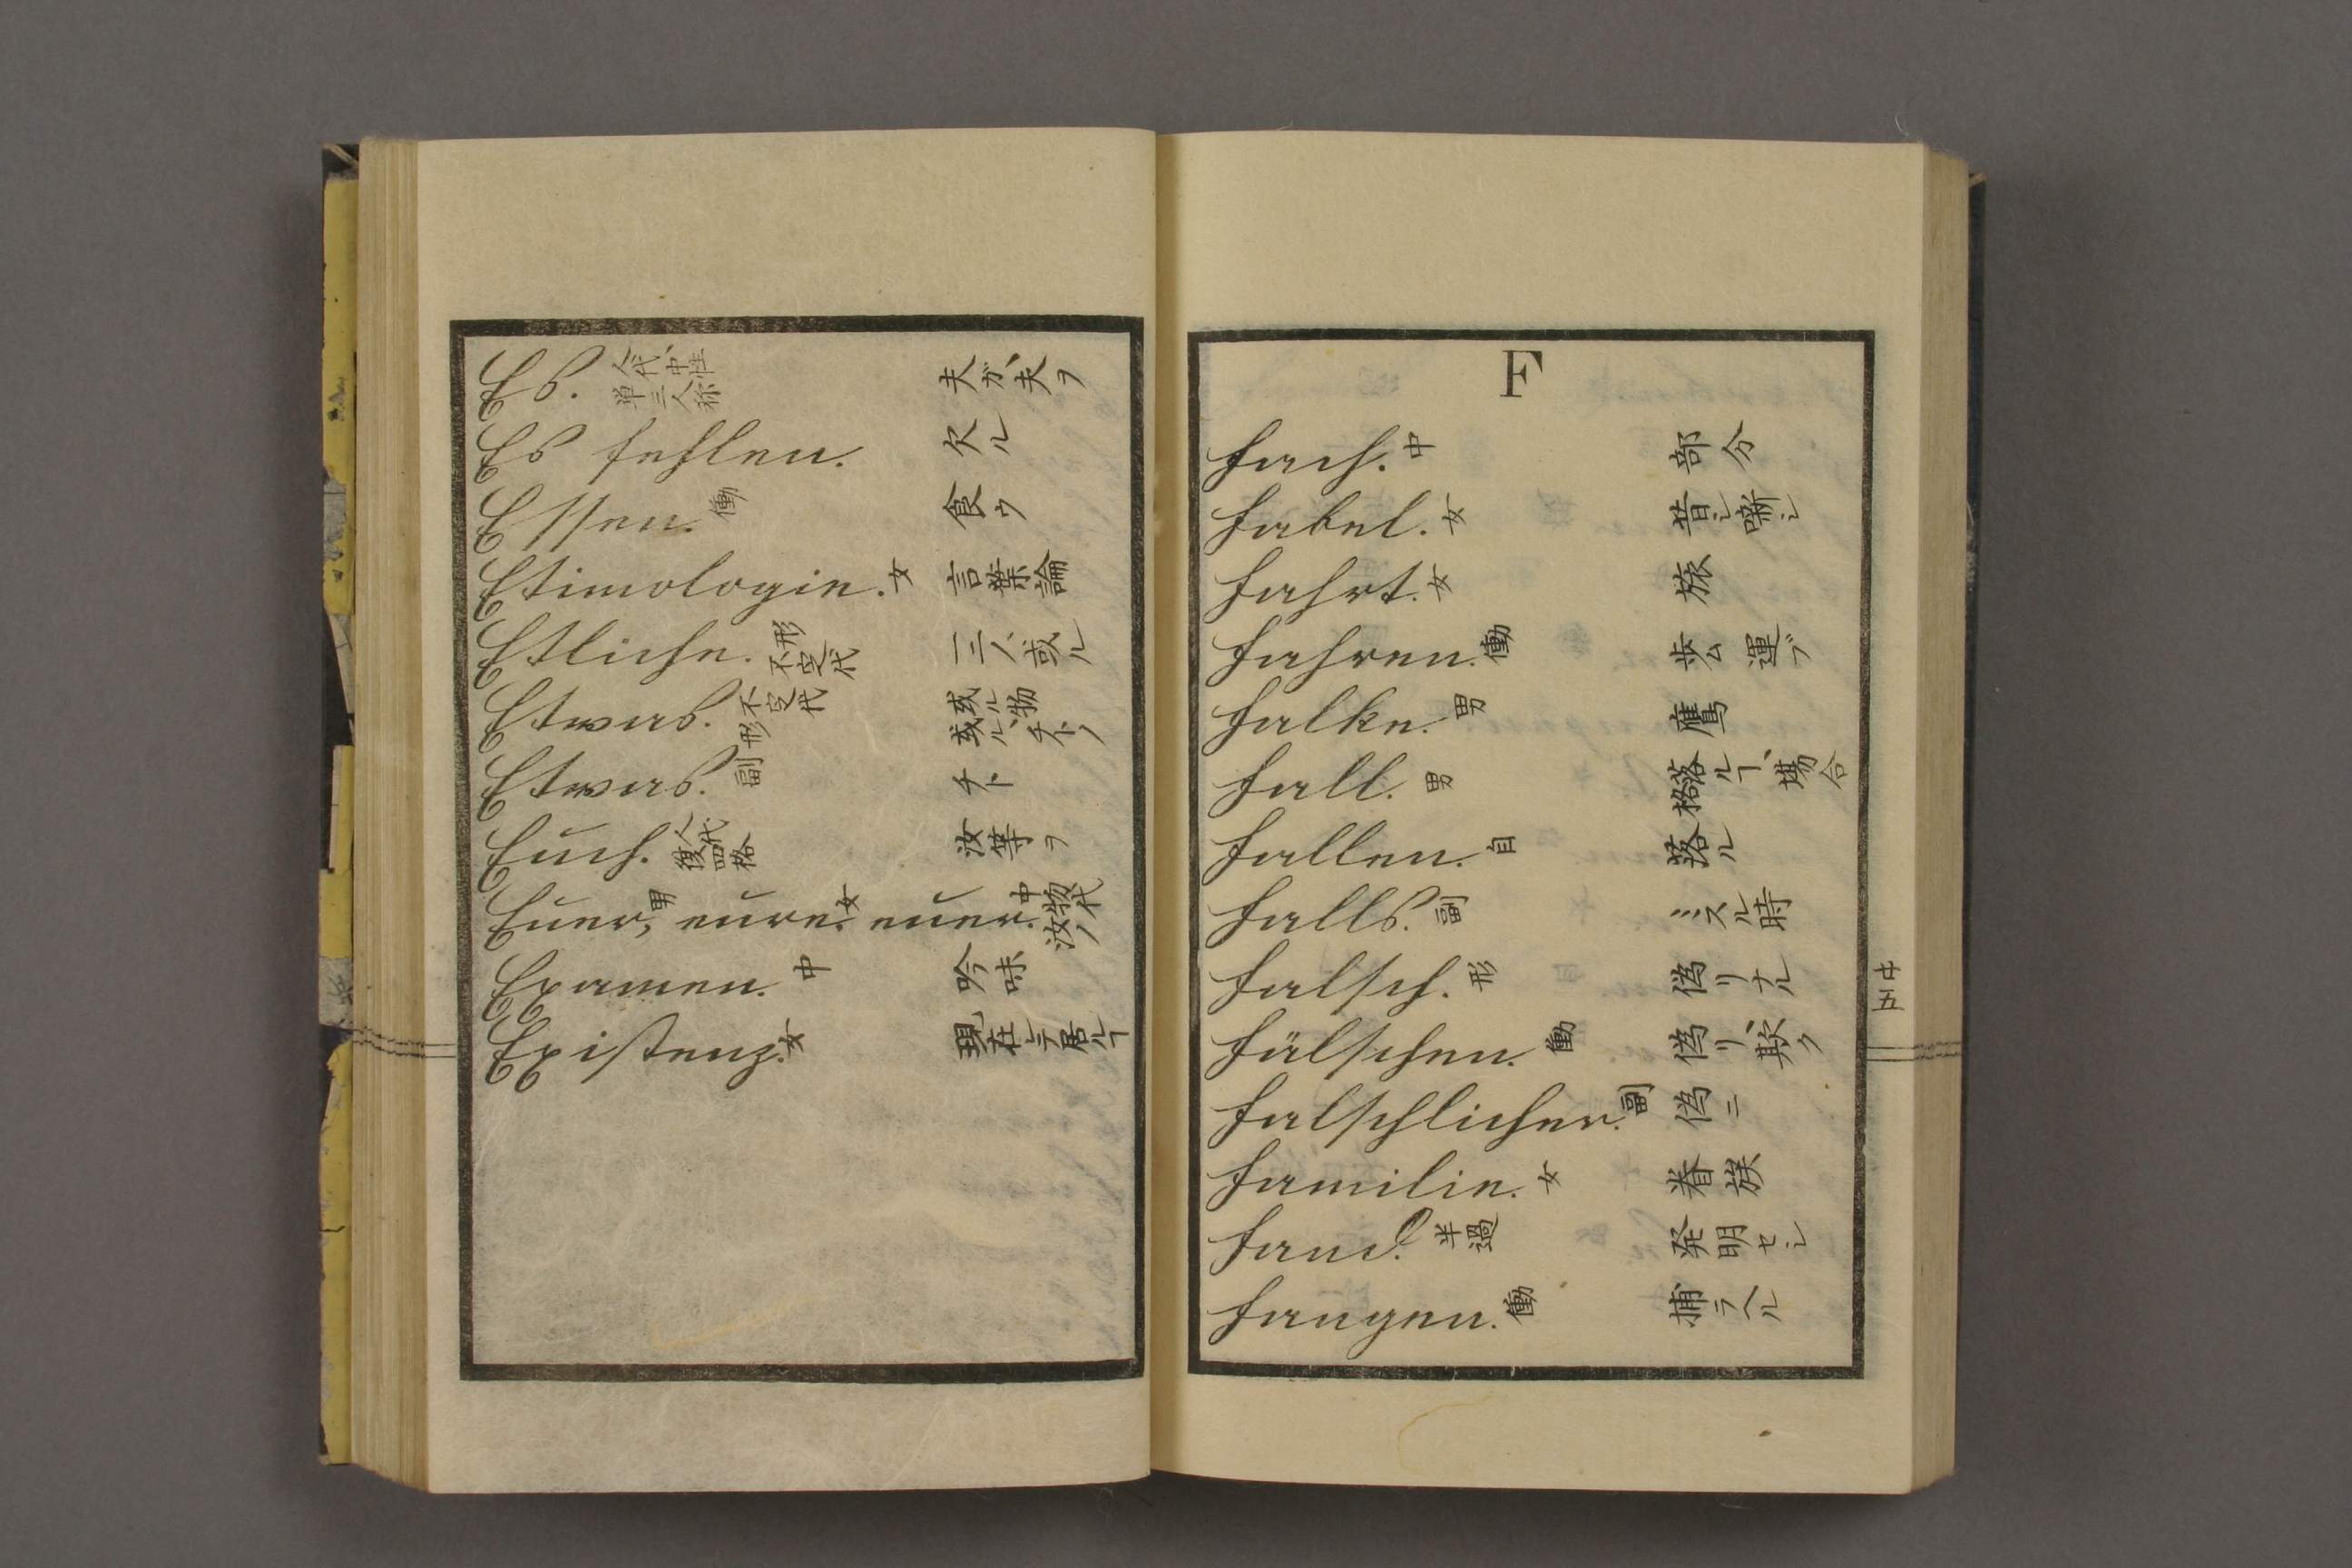 Es. 人代、中性 単三人称 夫ガ、夫ヲ
Es fehlen. 欠ル
Essen. 働 食ウ
Etimologie. 女 言葉論
Etliche. 形 不定代 二三ノ、或ル
Etwas. 不定代 形 或ル物 或ル、チトノ
Etwas. 副 チト
Euch. 人代 複四格 汝等ヲ
Euer, 男 eure. 女 euer. 中 物代 汝ノ
Examen. 中 吟味
Existenz. 女 現在シテ居ルヿ
F
Fach. 中 部分
Fabel. 女 昔シ噺シ
Fahrt. 女 旅
Fahren. 働 歩ム 運ブ
Falke. 男 鷹
Fall. 男 落ルヿ、場合 格
Fallen. 自 落ル
Falls. 副 ⋮スル時
Falsch. 形 偽リナル
Fälschen. 働 偽リ、欺ク
Falschlicher. 副 偽ニ
Familie. 女 眷族
Fand. 半過 発明セシ
Fangen. 働 捕ラヘル
五十